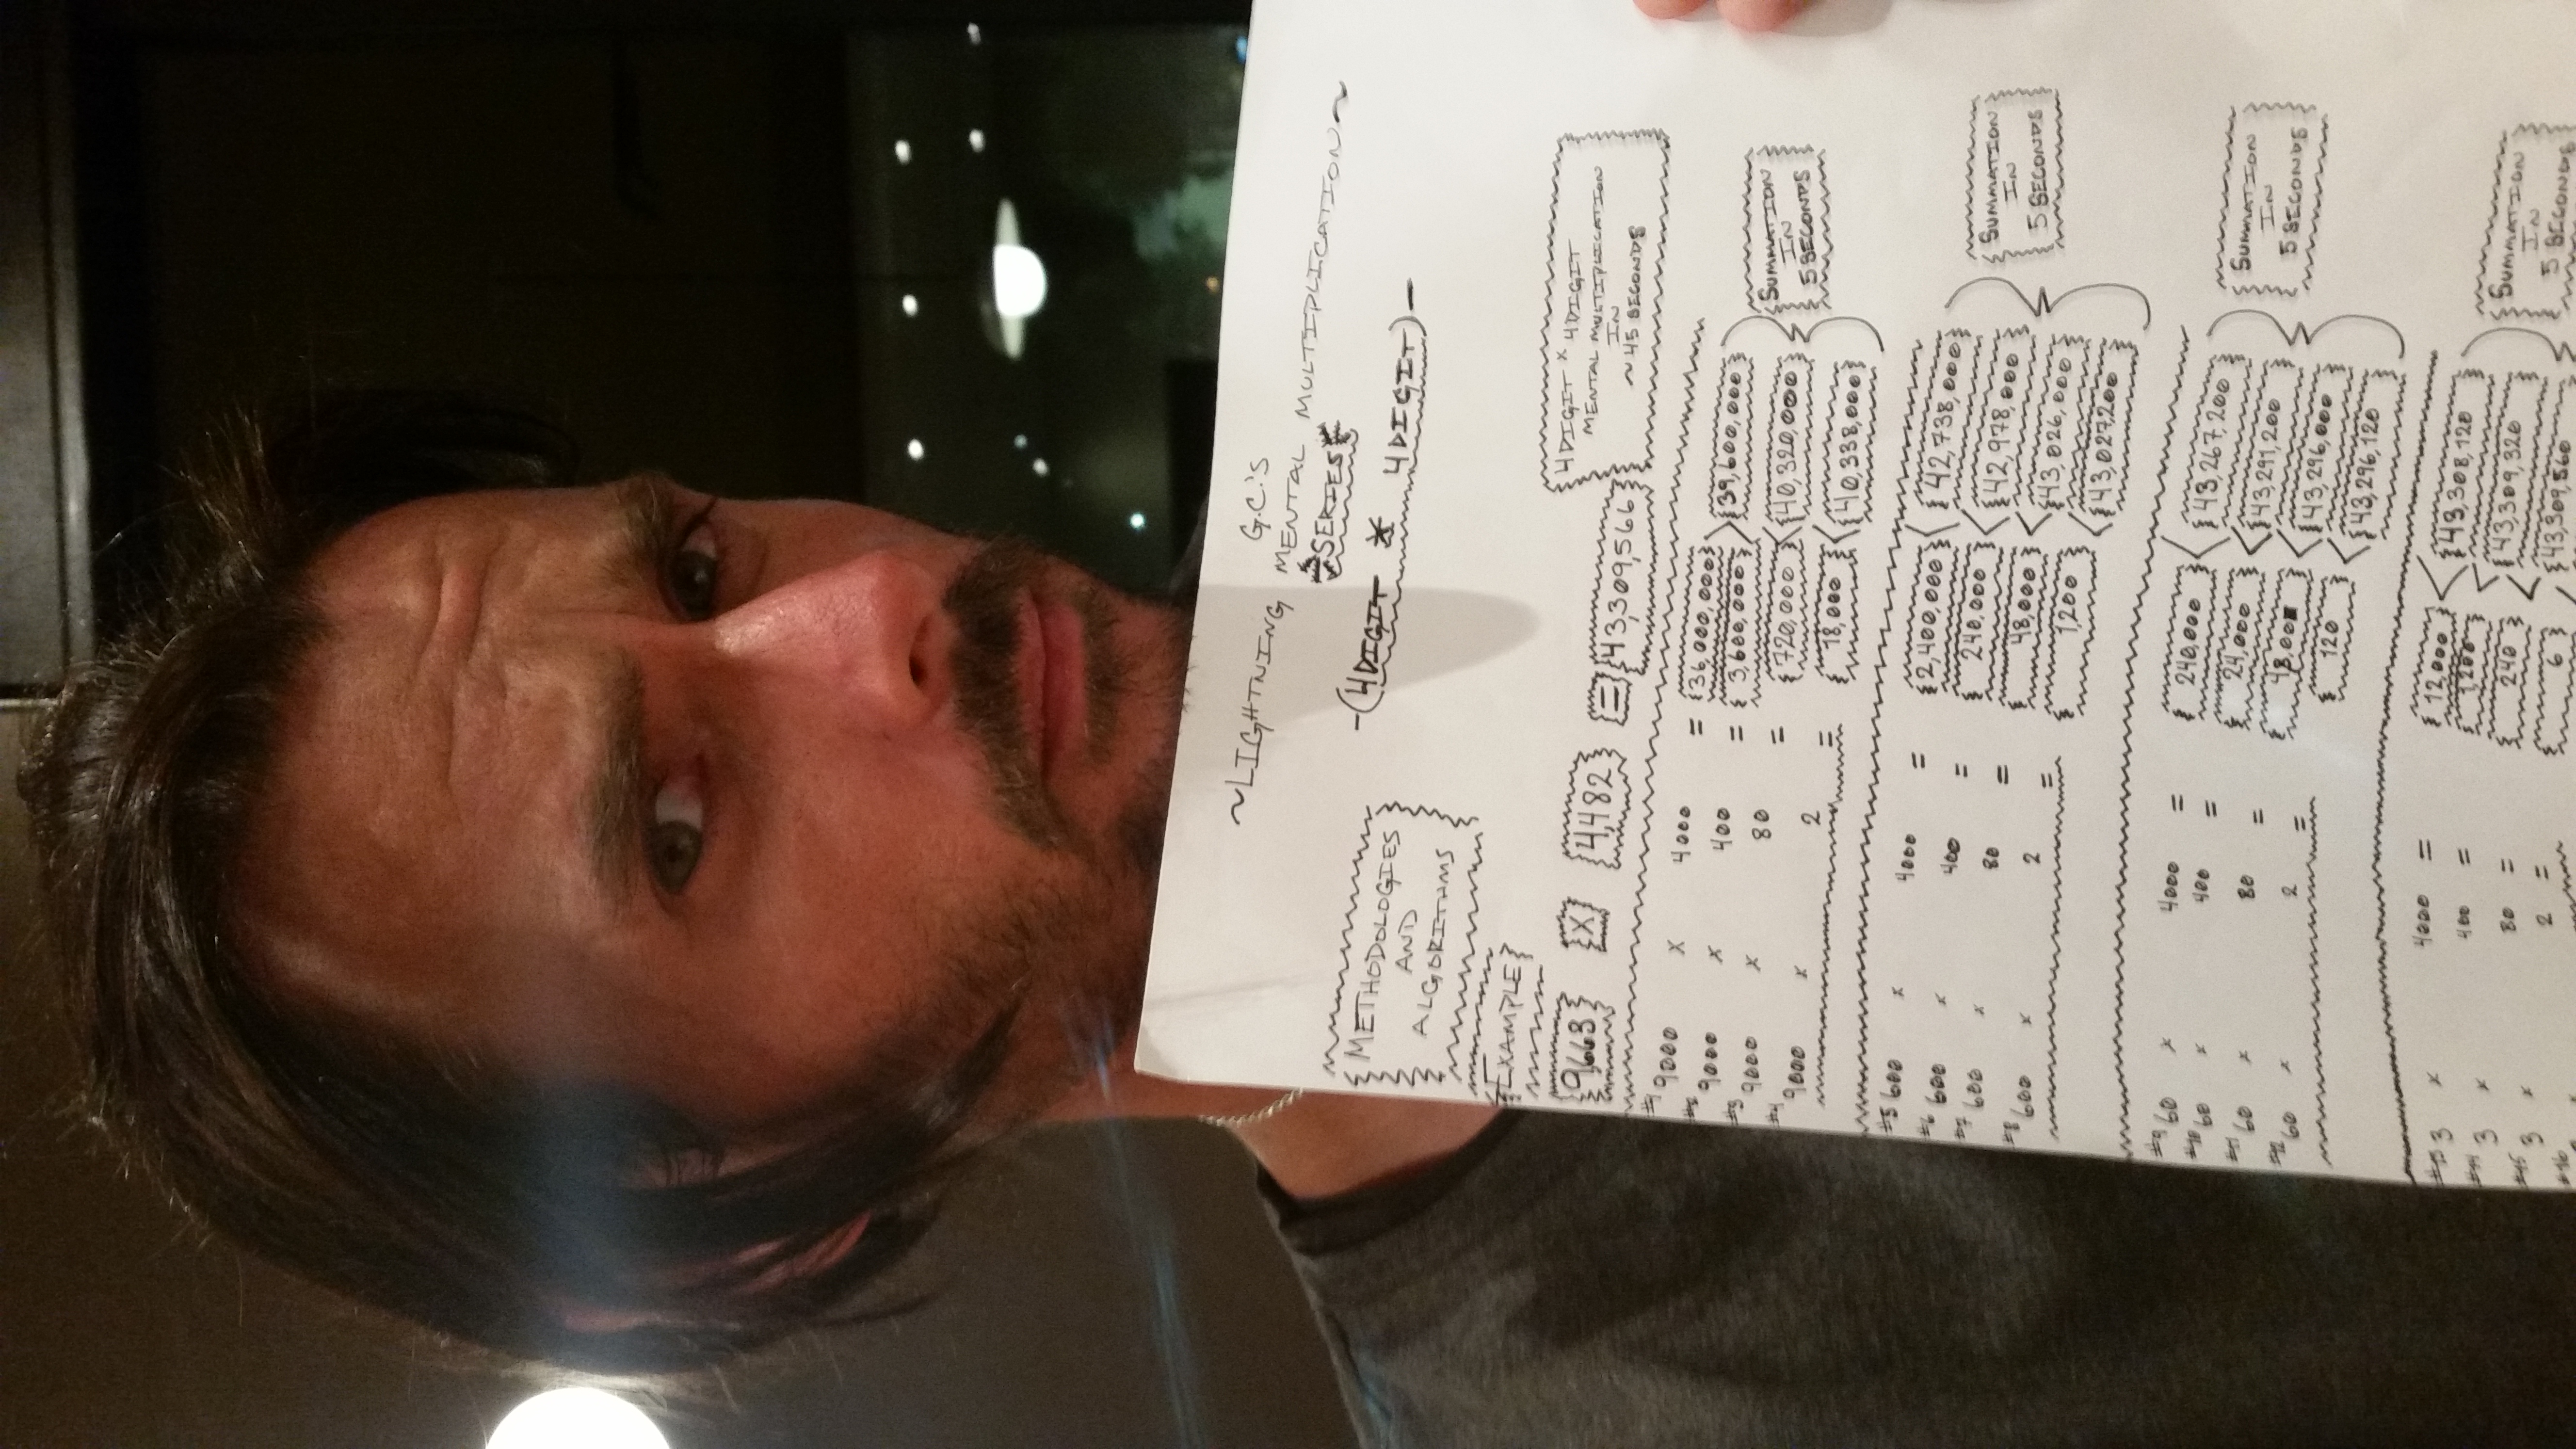 G.C.'S
~LIGHTNING MENTAL MULTIPLICATION~
SERIES
-(4DIGIT X 4DIGIT)-
METHODOLOGIES
AND
ALGORITHMS
EXAMPLE
9663 X 4,482 = 43,309,566
4DIGIT X 4DIGIT
MENTAL MULTIPLICATION
IN
~45 SECONDS
#1 9000 X 4000 = 36,000,000
#2 9000 X 400 = 3,600,000 > 39,600,000
#3 9000 X 80 = 720,000 < 40,320,000
#4 9000 X 2 = 18,000 < 40,338,000
SUMMATION
IN
5 SECONDS
#5 600 X 4000 = 2,400,000 < 42,738,000
#6 600 X 400 = 240,000 < 42,978,000
#7 600 X 80 = 48,000 < 43,026,000
#8 600 X 2 = 1,200 < 43,027,200
SUMMATION
IN
5 SECONDS
#9 60 X 4000 = 240,000 < 43,267,200
#10 60 X 400 = 24,000 < 43,291,200
#11 60 X 80 = < 43,296,000
#12 60 X 2 = 120 < 43,296,120
SUMMATION
IN
5 SECONDS
#13 3 X 4000 = 12,000 < 43,308,120
#14 3 X 400 = 1,200 < 43,309,320
#15 3 X 80 = 240 < 43,309,560
#16 2 = 6 <
SUMMATION
IN
5 SECONDS